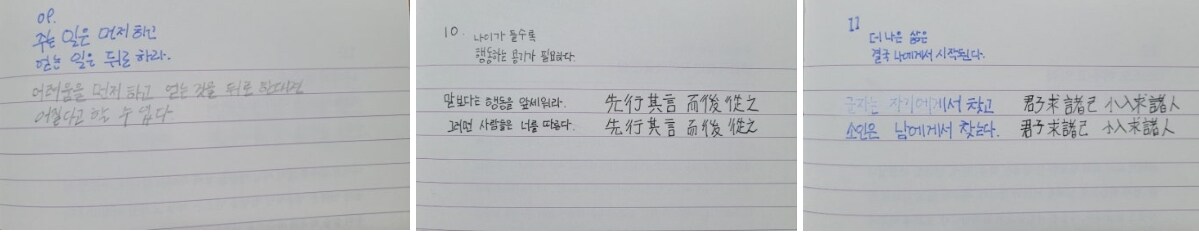 09.
주는 일은 먼저 하고
얻는 일은 뒤로 하라.
어려움을 먼저 하고 얻는 것을 뒤로 한다면
어질다고 할 수 있다
10. 나이가 들수록
행동하는 용기가 필요하다.
말보다는 행동을 앞세워라. 先行其言 而後從之
그러면 사람들은 너를 따른다. 先行其言 而後從之
11
더 나은 삶은
결국 나에게서 시작된다.
군자는 자기에게서 찾고 君子求諸己 小人求諸人
소인은 남에게서 찾는다. 君子求諸己 小人求諸人